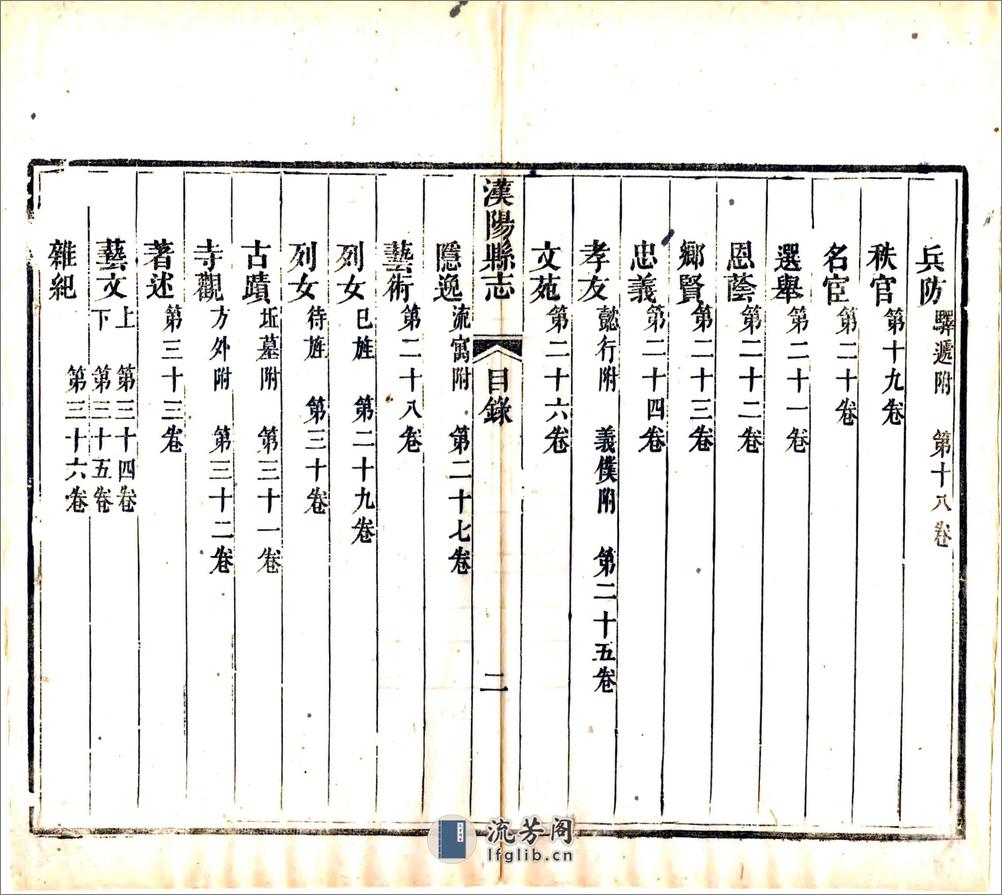 兵防 驛遞附 第十八卷
秩官 第十九卷
名宦 第二十卷
選舉 第二十一卷
恩蔭 第二十二卷
鄉賢 第二十三卷
忠義 第二十四卷
孝友 懿行附 義僕附 第二十五卷
文苑 第二十六卷
漢陽縣志 目錄 二
隱逸 流寓附 第二十七卷
藝術 第二十八卷
列女 已旌 第二十九卷
列女 待旌 第三十卷
古蹟 坵墓附 第三十一卷
寺觀 方外附 第三十二卷
著述 第三十三卷
藝文 上 第三十四卷
下 第三十五卷
雜紀 第三十六卷
流芳阁
lfglib.cn